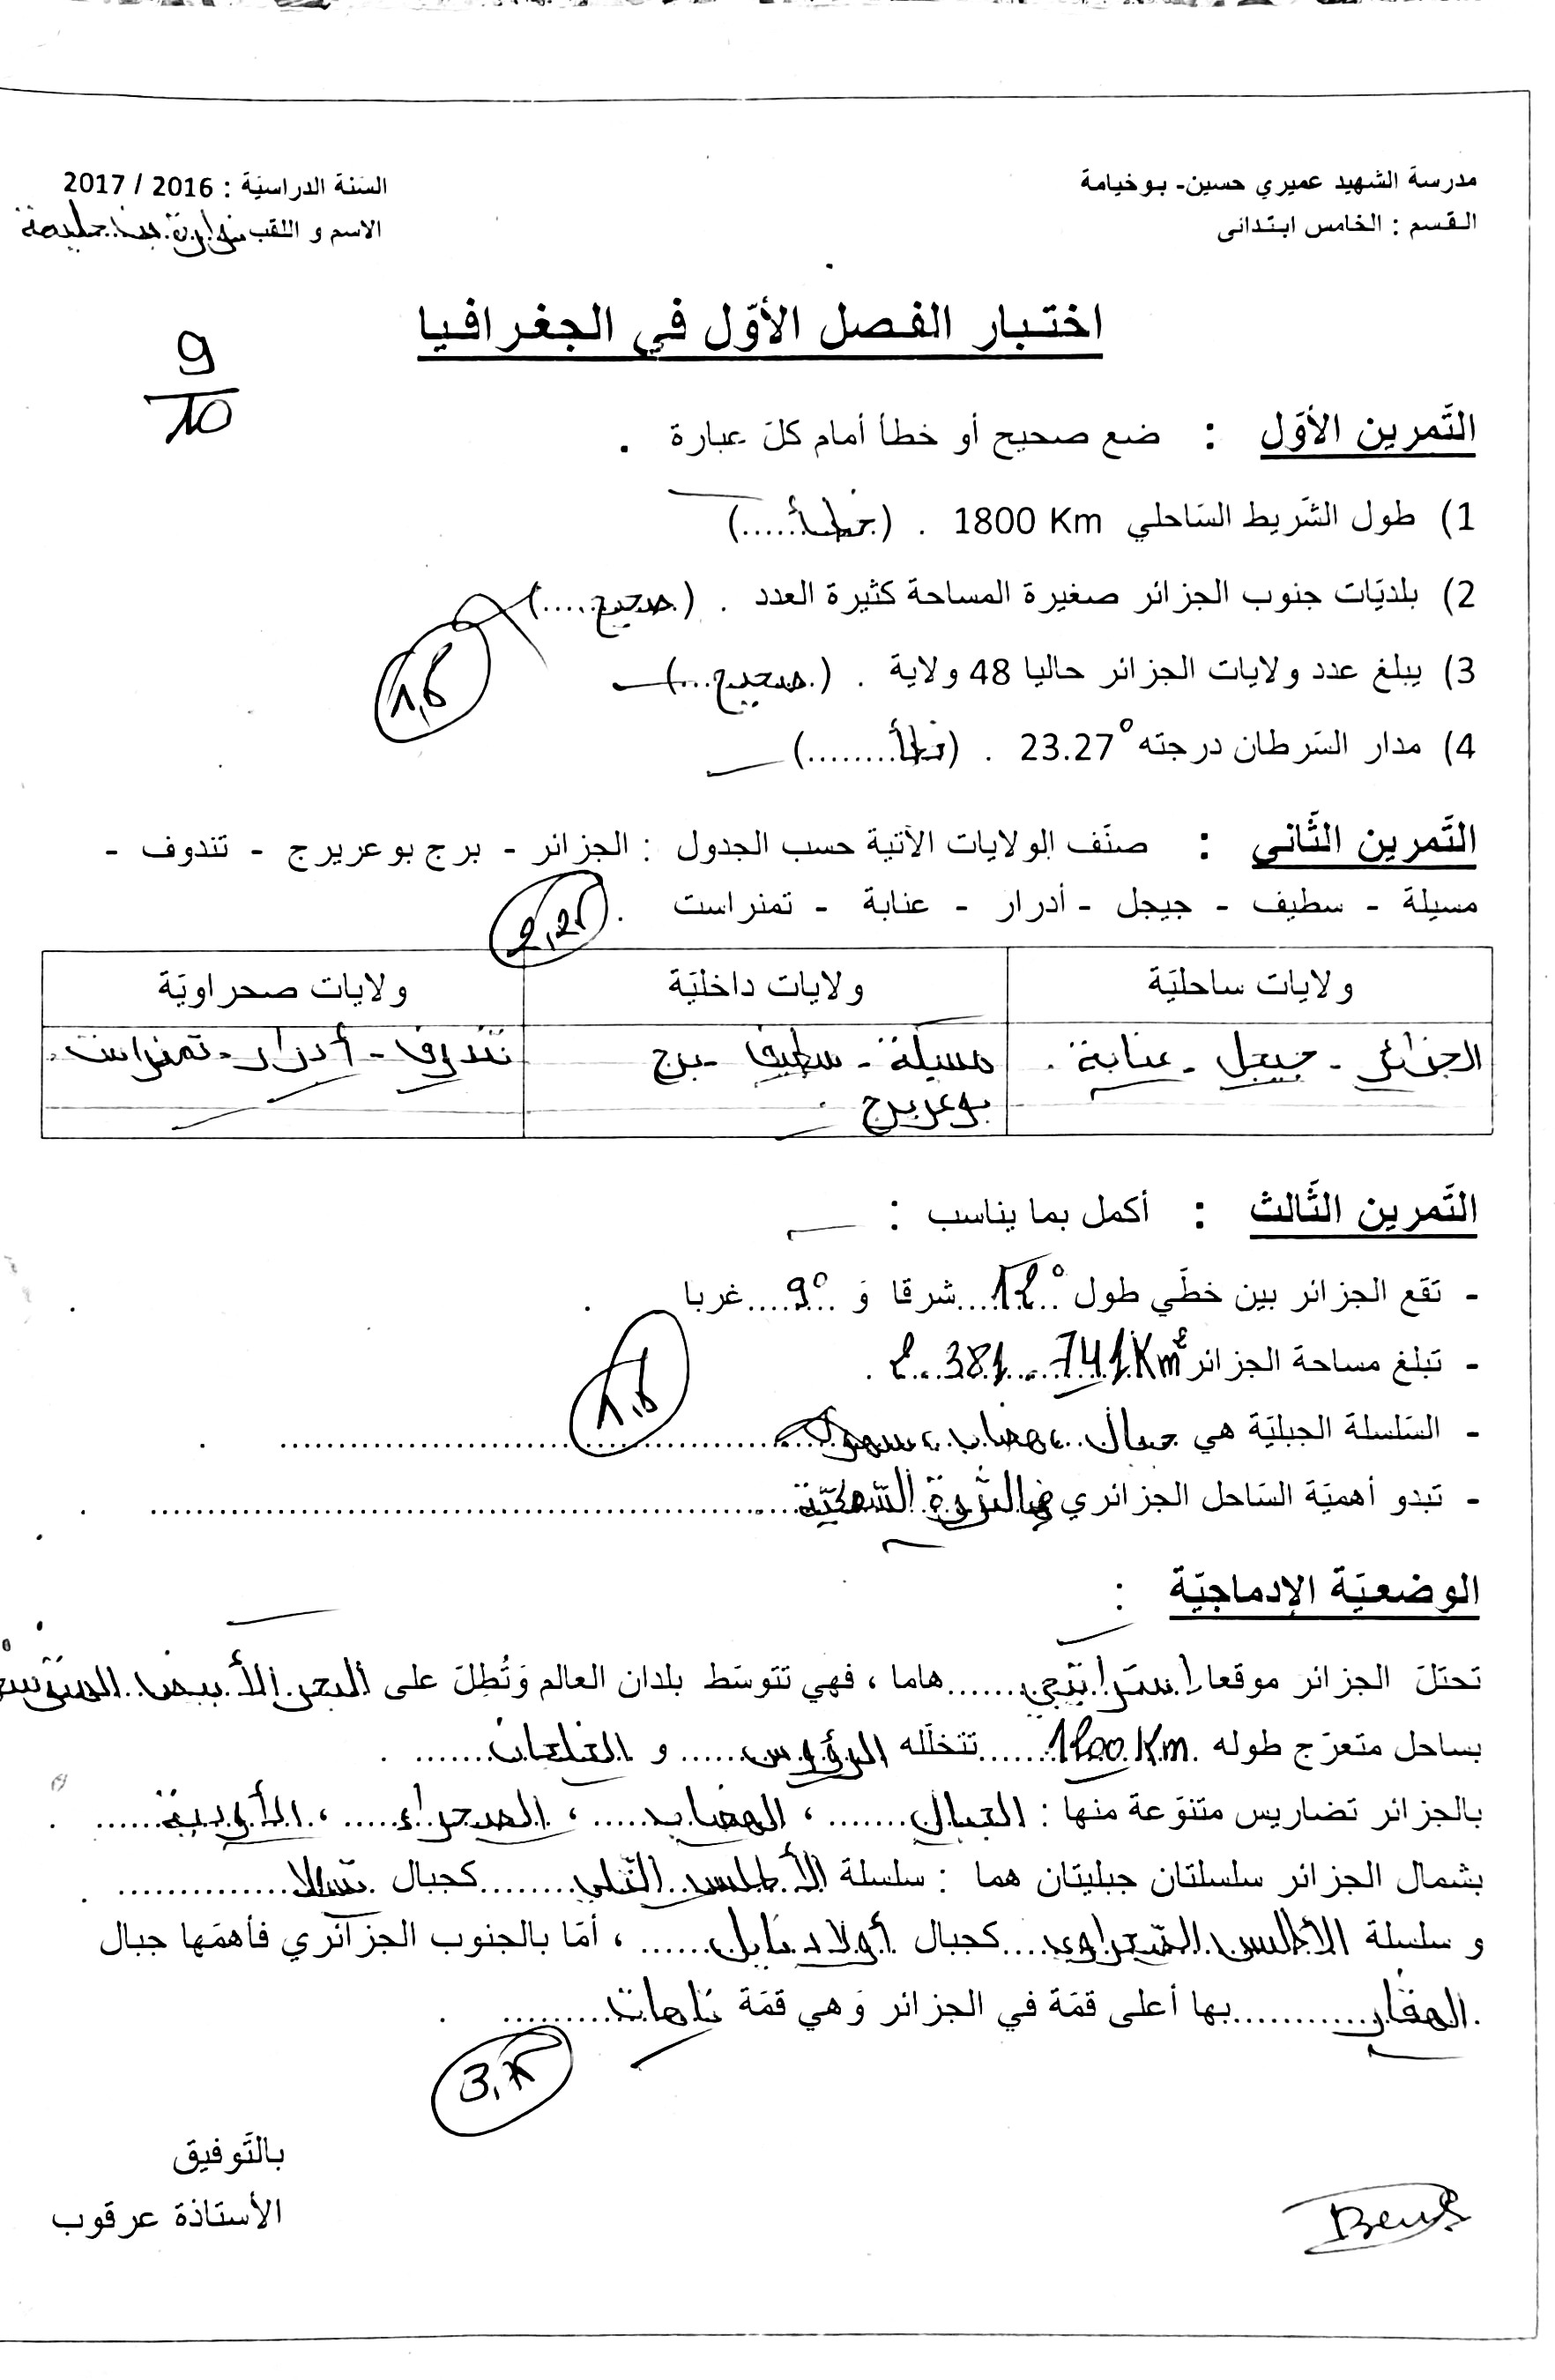 مدرسة الشهيد عميري حسين- بوخيامة
السَنة الدراسيَة : 2016 / 2017
القسم : الخامس ابتدائي
الاسم و اللقب
اختبار الفصل الأوّل في الجغرافيا
9/10
التَمرين الأوَل : ضع صحيح أو خطأ أمام كلَ عبارة .
1) طول الشَريط السَاحلي 1800 Km . (خطأ.....)
2) بلديَات جنوب الجزائر صغيرة المساحة كثيرة العدد . (صحيح.....)
3) يبلغ عدد ولايات الجزائر حاليا 48 ولاية . (صحيح...)
1,5
4) مدار السَرطان درجته 23.27° . (خطأ........)
التَمرين الثَاني : صنَف الولايات الآتية حسب الجدول : الجزائر - برج بوعريريج - تندوف -
مسيلة - سطيف - جيجل - أدرار - عنابة - تمنراست .
2,25
ولايات ساحليَة ولايات داخليَة ولايات صحراويَة
الجزائر - جيجل - عنابة . مسيلة - سطيف - برج تندوف - أدرار - تمنراست .
بوعريرج .
التَمرين الثَالث : أكمل بما يناسب :
- تقع الجزائر بين خطَي طول 12° شرقا وَ 9° غربا .
- تبلغ مساحة الجزائر 2 381 741 Km² .
1,5
- السَلسلة الجبليَة هي جبال، هضاب، سهول .
- تبدو أهميَة السَاحل الجزائري في الثروة السّمكيّة .
الوضعيَة الإدماجيَة :
تحتلَ الجزائر موقعا استراتيجي هاما ، فهي تتوسَط بلدان العالم وَتُطِلَ على البحر الأبيض المتوسط
بساحل متعرَج طوله 1200 Km تتخلَله الرؤوس و الخلجان .
بالجزائر تضاريس متنوَعة منها : الجبال ، الهضاب ، الصحراء ، الأودية .
بشمال الجزائر سلسلتان جبليتان هما : سلسلة الأطلس التّلي كجبال تسالا .
و سلسلة الأطلس الصّحراوي كجبال أولاد نايل ، أمَا بالجنوب الجزائري فأهمَها جبال
الهقار بها أعلى قمَة في الجزائر وَهي قمَة تاهات .
3,75
بالتَوفيق
الأستاذة عرقوب